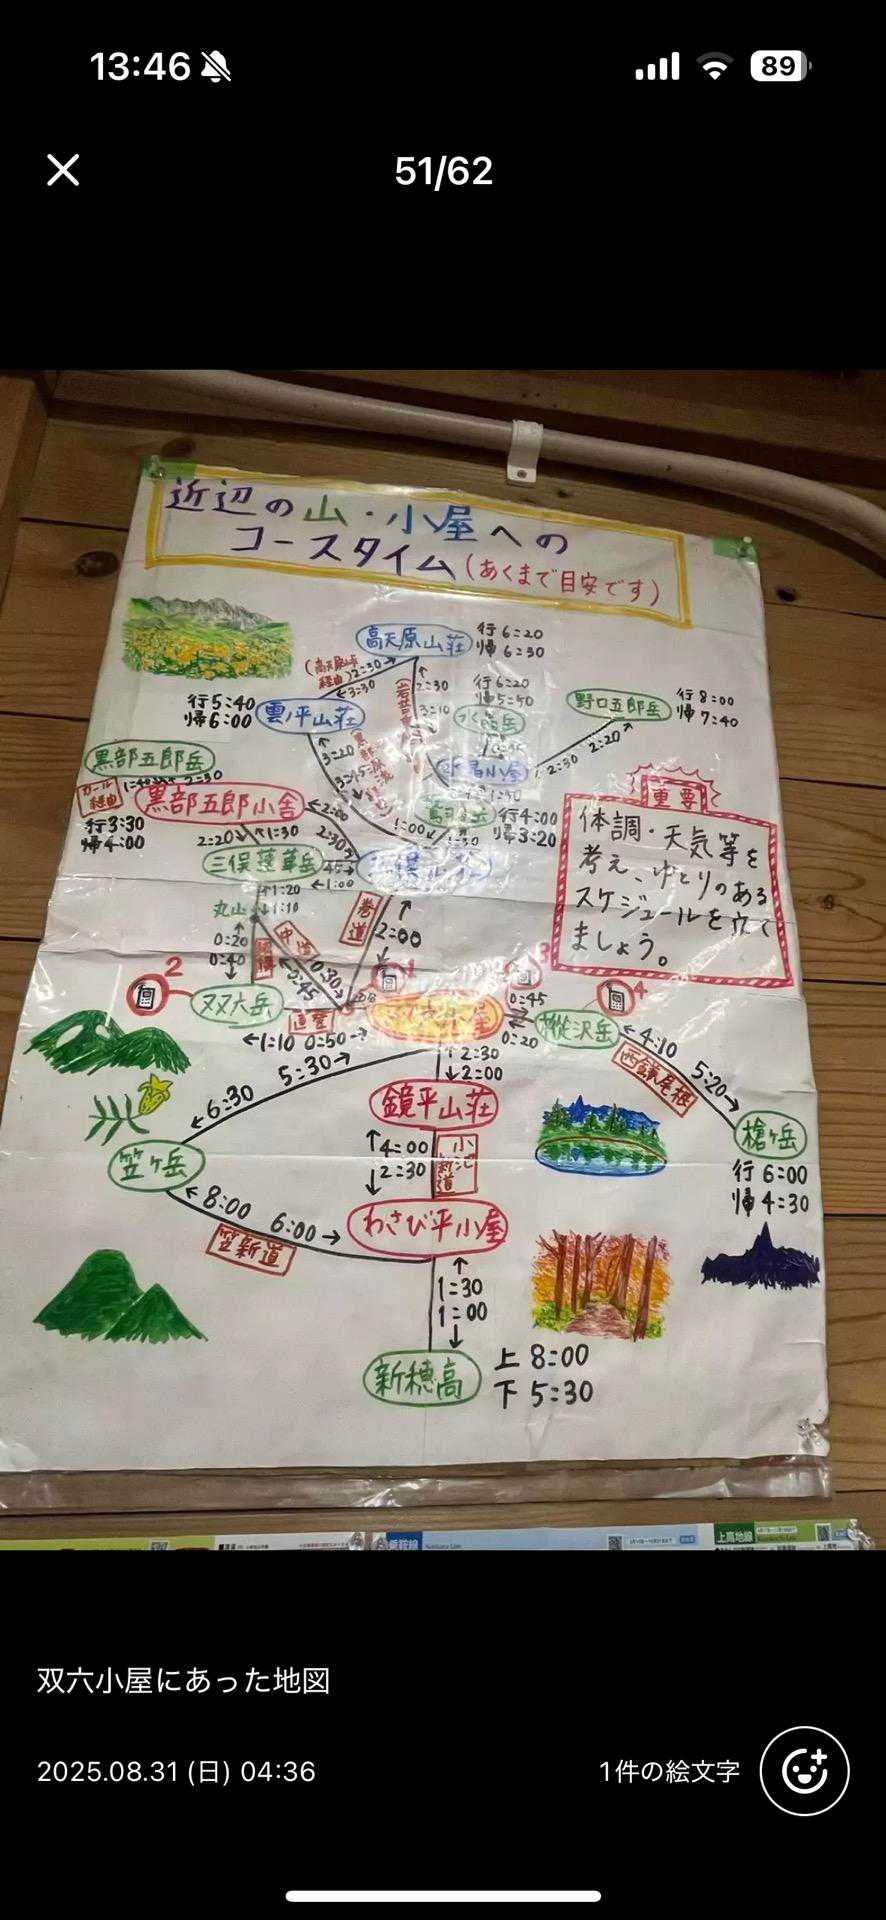 13:46
89
51/62
近辺の山・小屋への
コースタイム(あくまで目安です)
高天原山荘
行 6:20
帰 6:30
(高天原峠
経由)
2:30
3:30
2:30
3:10
行6:20
帰5:50
行5:40
帰6:00
雲ノ平山荘
野口五郎岳
行 8:00
帰 7:40
2:30
2:20
3:20
黒部五郎岳
カール
経由
2:30
黒部五郎小舎
2:00
行3:30
帰4:00
2:20
1:30
2:30
行4:00
帰3:20
1:00
三俣蓮華岳
1:00
1:20
1:10
丸山
0:20
0:40
中道
0:30
0:45
巻道
2:00
重要
体調・天気等を
考え、ゆとりのある
スケジュールを立て
ましょう。
2
双六岳
直登
1:10
0:50
3
0:45
0:20
樅沢岳
4
4:10
5:20
西鎌尾根
槍ヶ岳
行 6:00
帰 4:30
2:30
2:00
6:30
5:30
鏡平山荘
笠ヶ岳
4:00
2:30
小池
新道
8:00
6:00
笠新道
わさび平小屋
1:30
1:00
新穂高
上 8:00
下 5:30
乗鞍線
上高地線
双六小屋にあった地図
2025.08.31 (日) 04:36
1件の絵文字